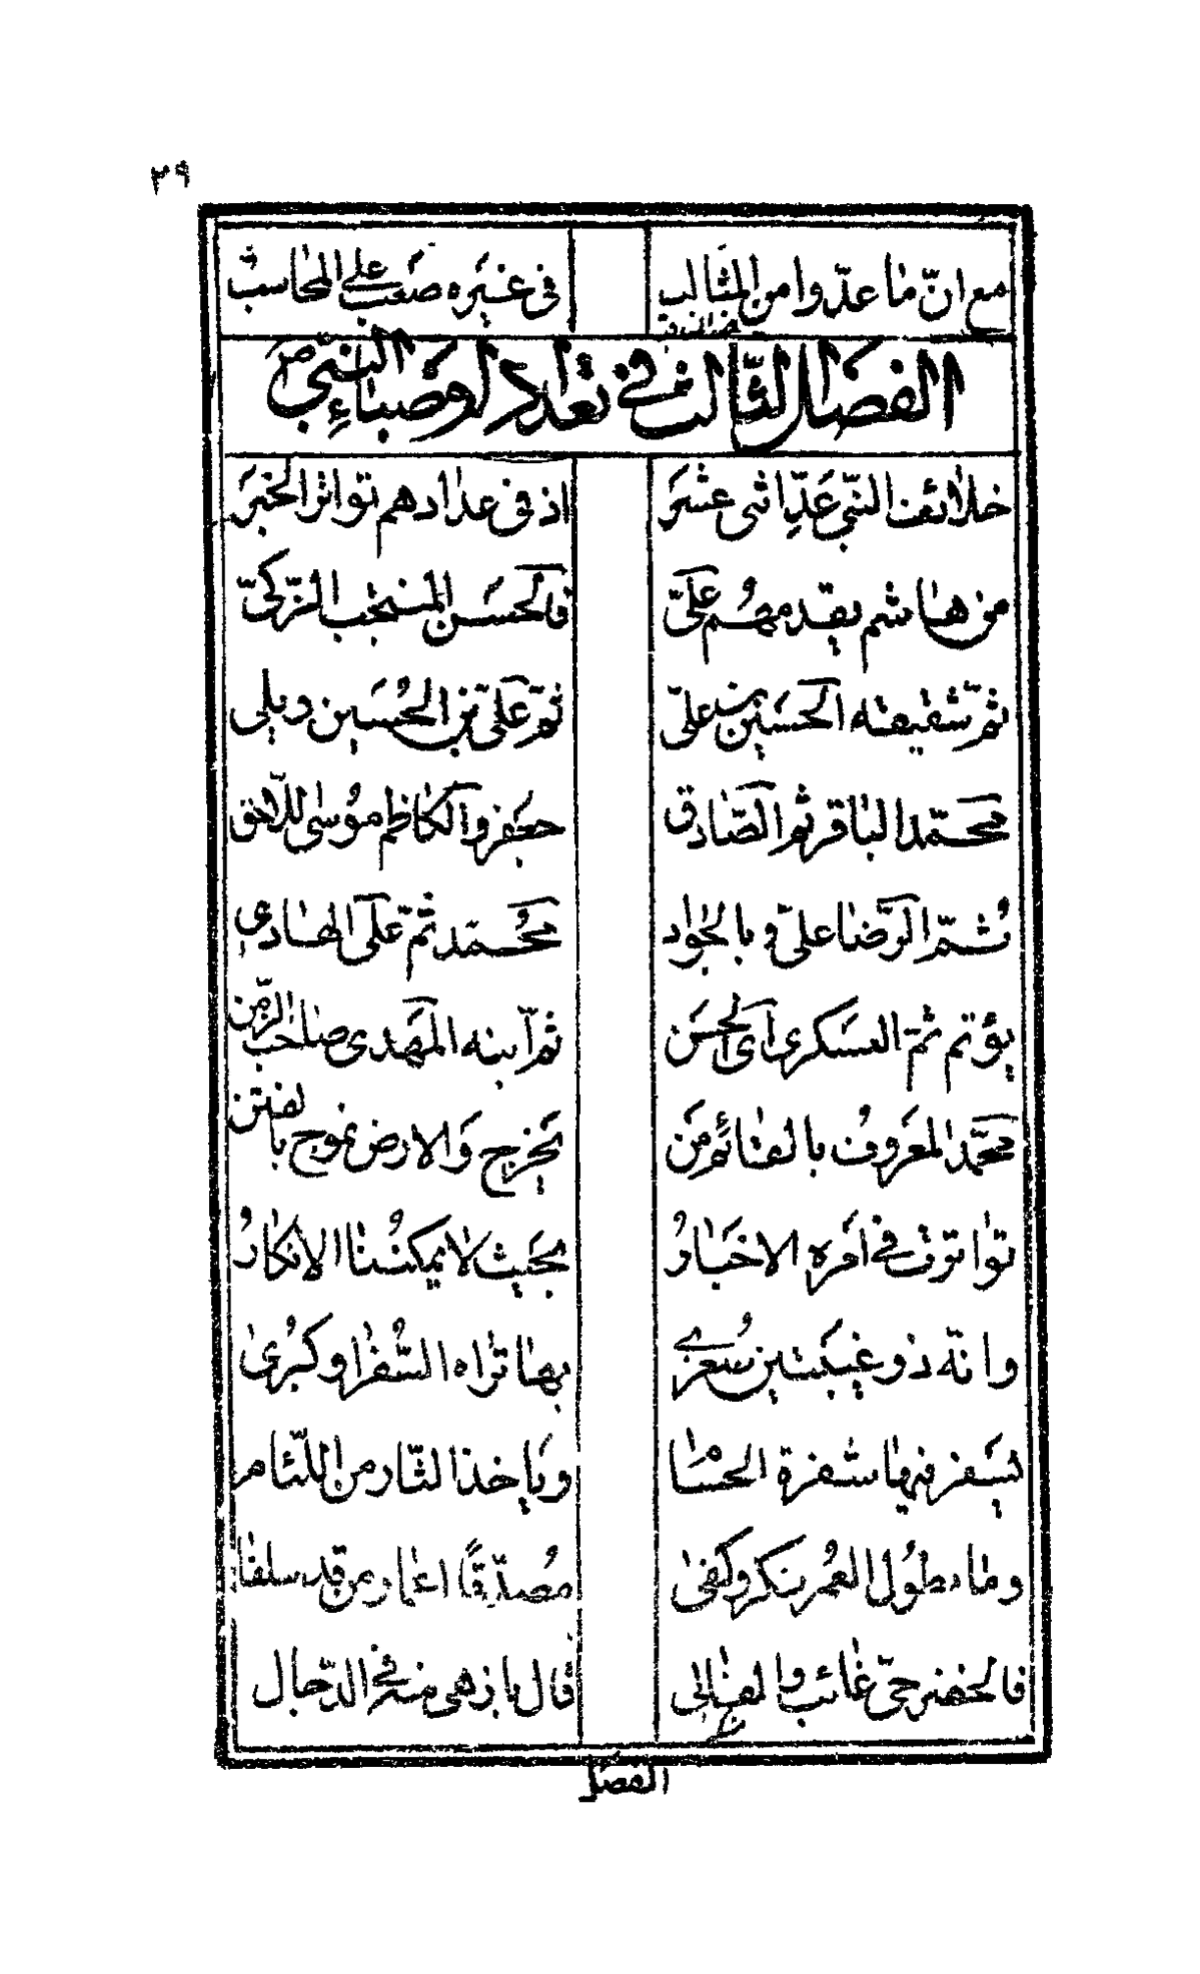 ٣٩
مع انّ ما عدّوا من المثالب في غيره صعب على المحاسب
الفصل الثالث في تعداد اوصياء النبي ص
خلائف النبي عدّ اثنى عشر اذ في عدادهم تواتر الخبر
من هاشم يقدمهم علىّ فالحسن المنتجب الزكيّ
ثمّ شقيقه الحسين بن علىّ ثمّ علىّ بن الحسين ويلى
محمّد الباقر ثم الصّادق جعفر والكاظم موسى للاحق
ثمّ الرّضا علىّ وبالجواد محمّد ثمّ علىّ الهادي
يؤتم ثمّ العسكرى اى الحسن ثم ابنه المهدى صاحب الزّمن
محمّد المعروف بالقائم من يخرج والارض تموج بالفتن
تواترت في امره الاخبار بحيث لا يمكننا الانكار
وانّه ذو غيبتين صغرى بها تراه السّفرا وكبرى
يسفر فيها سفرة الحساما وياخذ الثّار من اللّئاما
وما بطول العمر ينكر وكفى مصدّقا اعمار من قد سلفا
فالخضر حىّ غائب والقالى قال بازهى منه في الدّجال
الفصل